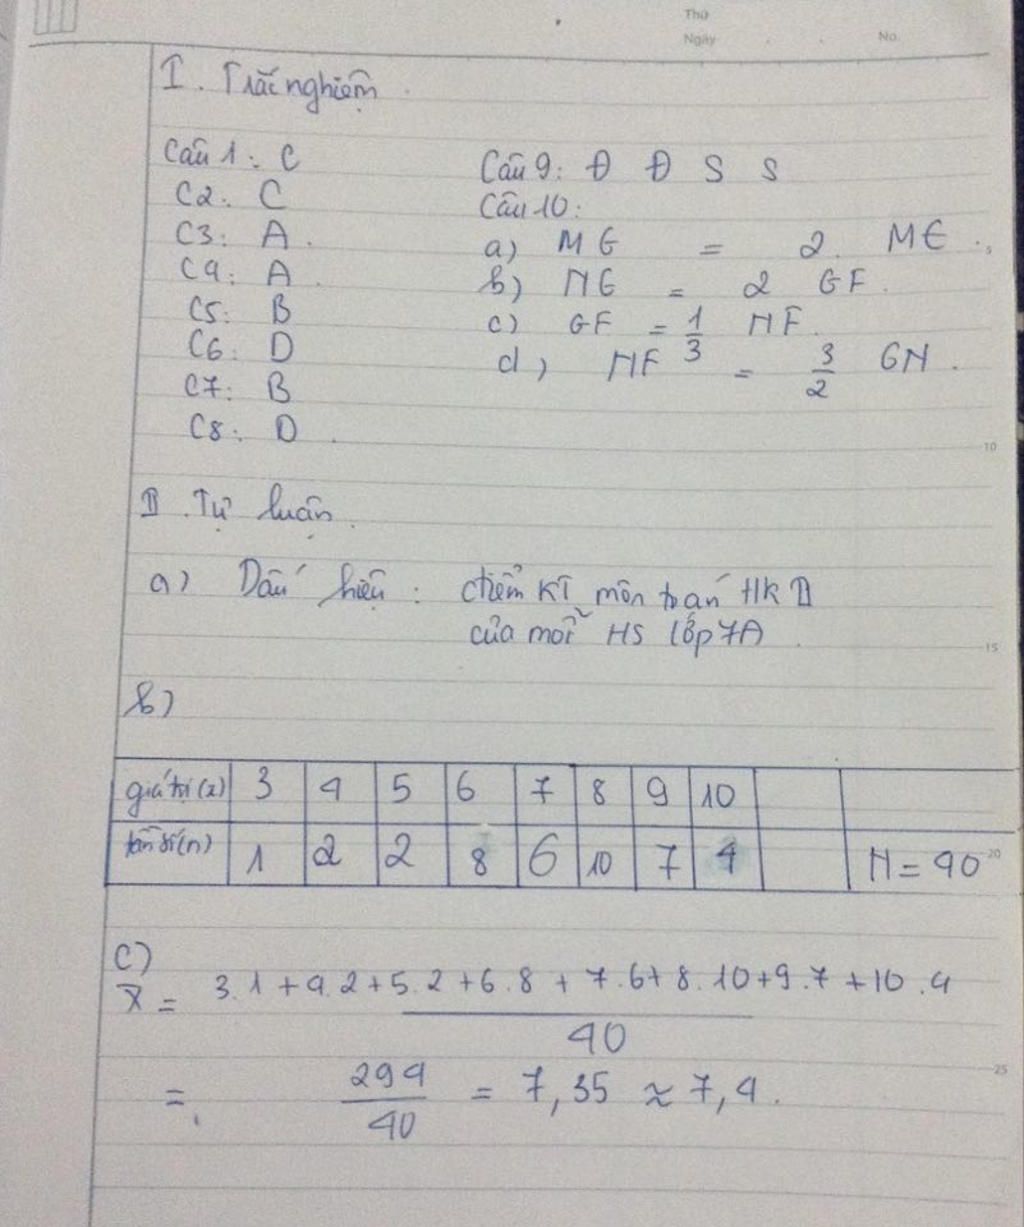 Thứ
Ngày
No.
I. Trắc nghiệm
Câu 1: C
C2: C
C3: A.
C4: A
C5: B
C6: D
C7: B
C8: D.
Câu 9: Đ Đ S S
Câu 10:
a) MG = 2 ME.
b) NG = 2 GF.
c) GF = 1/3 NF.
d) NF = 3/2 GN.
10
II. Tự luận.
a) Dấu hiệu: điểm KT môn toán HK II
của mỗi HS lớp 7A.
15
b)
giá trị (x) 3 4 5 6 7 8 9 10
tần số (n) 1 2 2 8 6 10 7 4 N = 40
20
c)
X̄ = (3.1 + 4.2 + 5.2 + 6.8 + 7.6 + 8.10 + 9.7 + 10.4) / 40
25
= 294/40 = 7,35 ≈ 7,4.